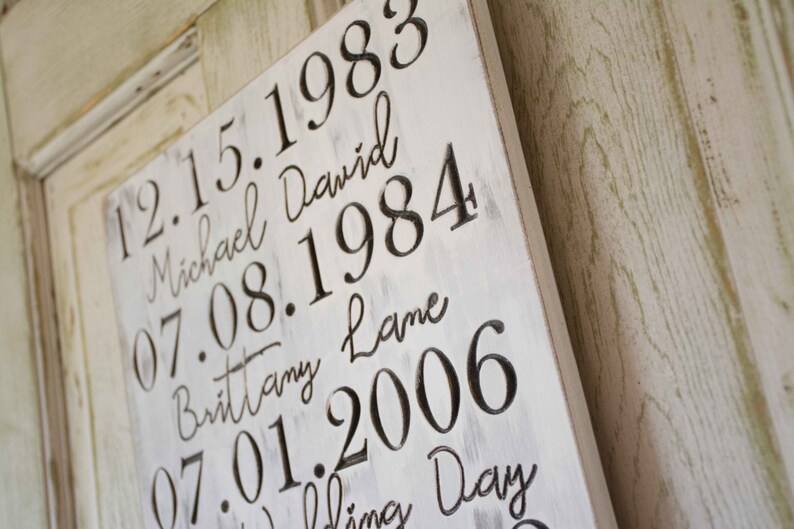 12.15.1983
Michael David
07.08.1984
Brittany Lane
07.01.2006
Wedding Day